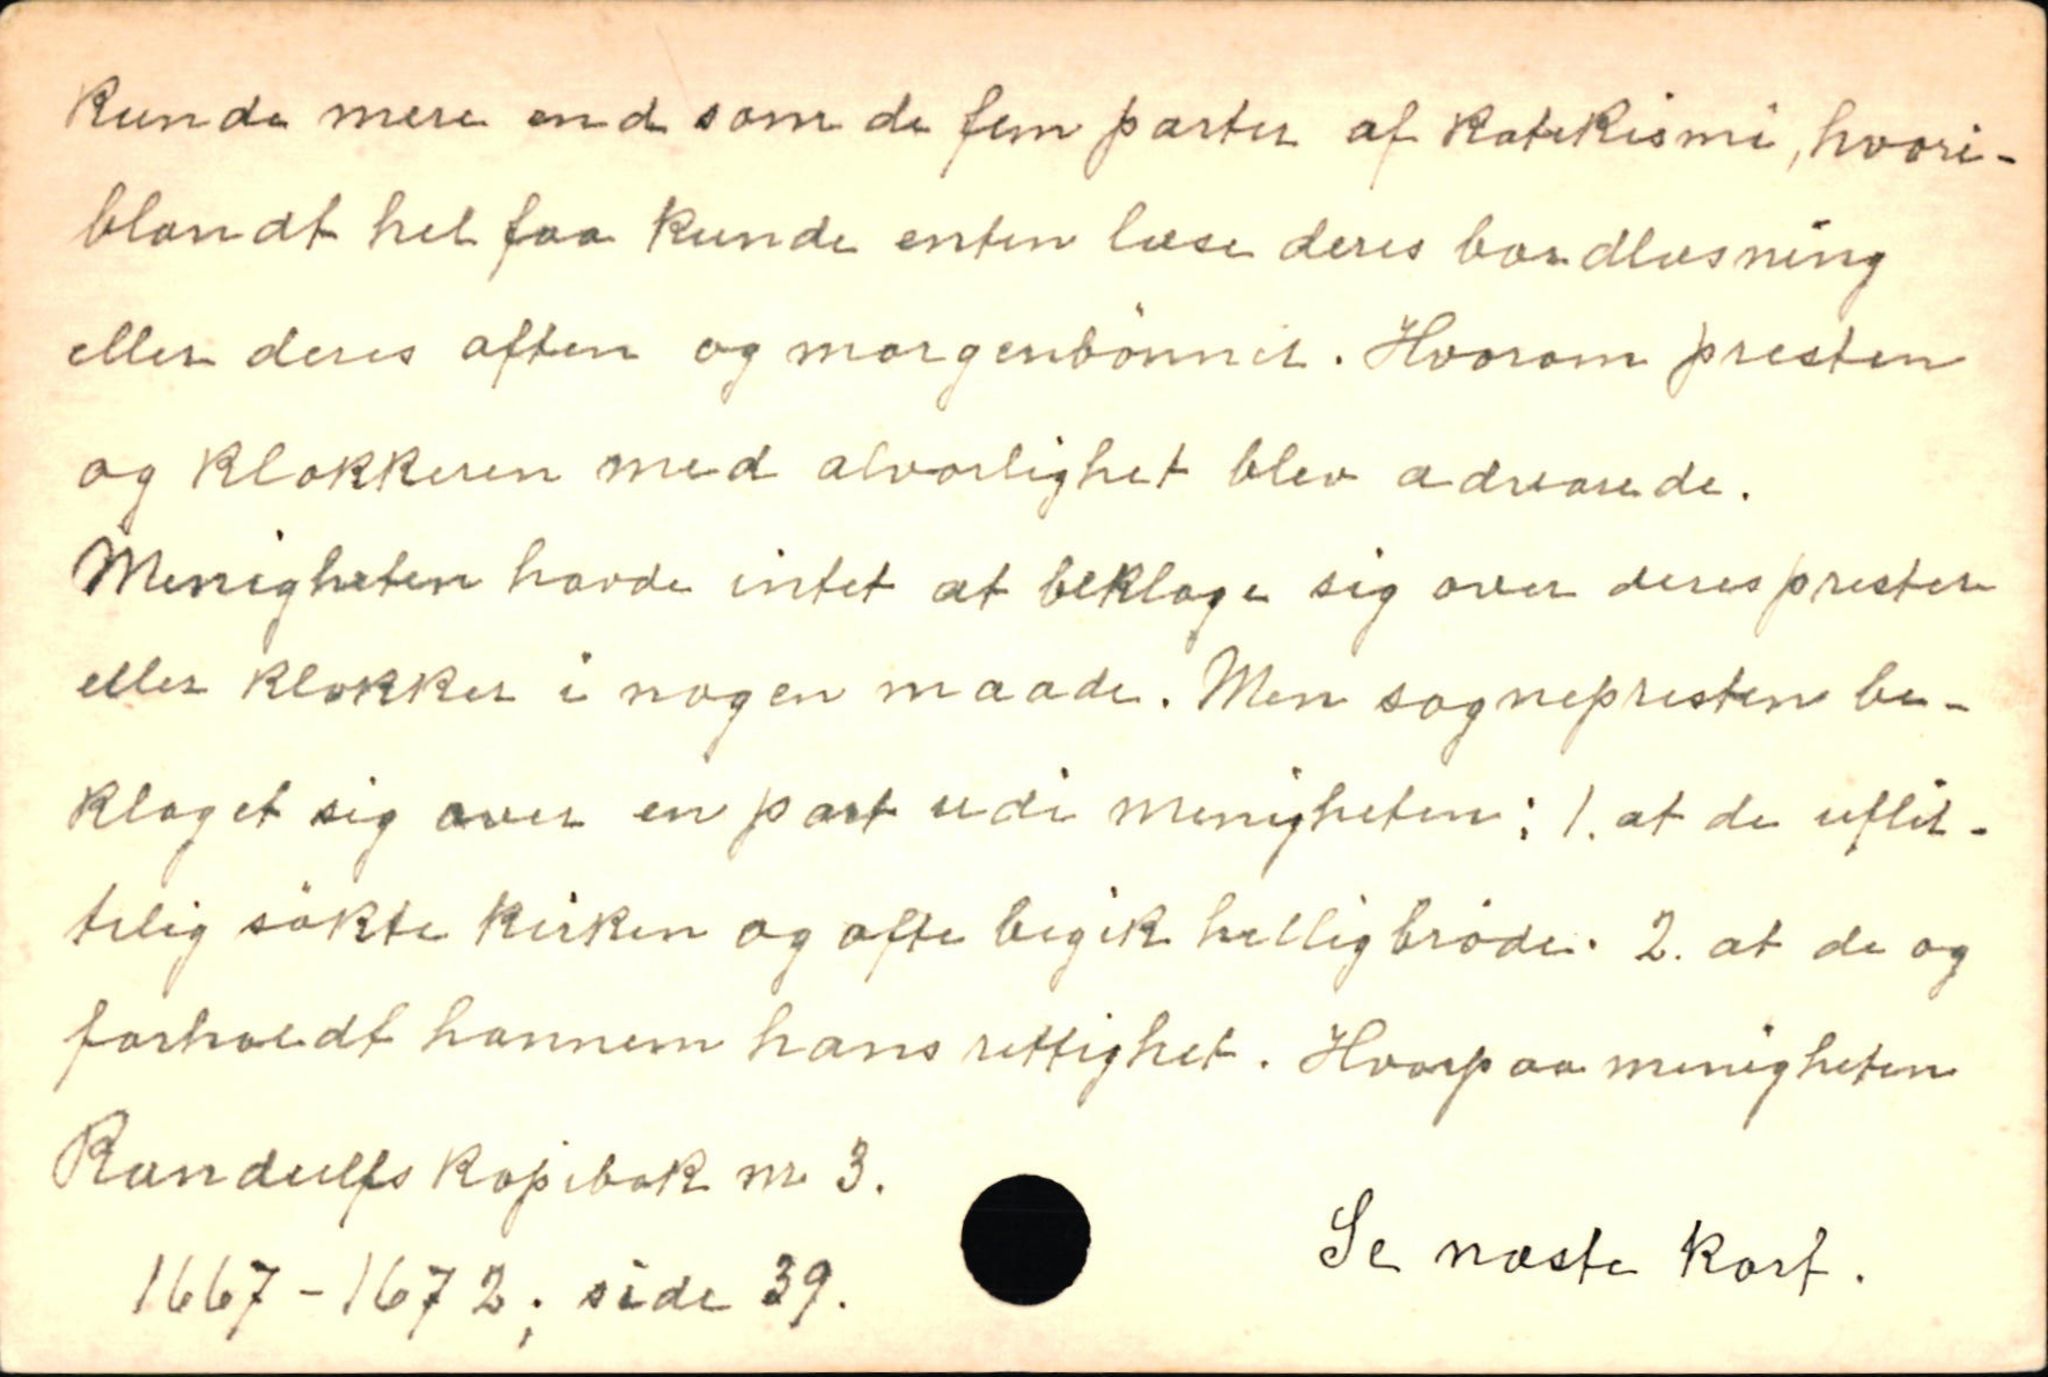 kunde mere end som de fem parter af katekismi, hvori-
blandt hel faa kunde enten læse deres bordlæsning
eller deres aften og morgenbönner. Hvorom presten
og klokkeren med alvorlighet blev advarede.
Menigheten havde intet at beklage sig over deres prester
eller klokker i nogen maade. Men sognepresten be-
klaget sig over en part udi menigheten: 1. at de uflit-
telig sökte kirken og ofte begik helligbröde. 2. at de og
forholdt hannem hans rettighet. Hvorpaa menigheten
Randulfs kopibok nr 3.
1667-1672; side 39.
Se næste kort.